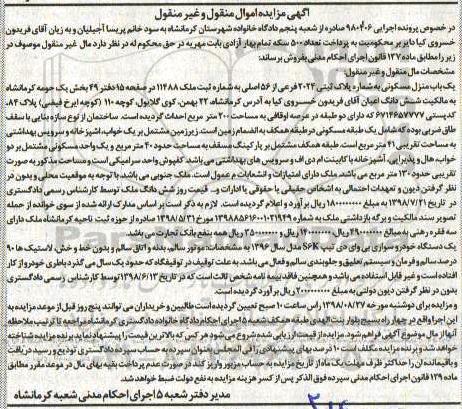 آگهی مزایده اموال منقول و غیر منقول
در خصوص پرونده اجرایی ۹۸۰۴۰۶ صادره از شعبه پنجم دادگاه خانواده شهرستان کرمانشاه به سود خانم پریسا آجیلیان و به زیان آقای فریدون
خسروی کیا دایر بر محکومیت به پرداخت تعداد ۵۰۰ سکه تمام بهار آزادی بابت مهریه در حق محکوم له در نظر دارد مال غیر منقول موصوف در
زیر را مطابق ماده ۱۳۷ قانون اجرای احکام مدنی بفروش برساند:
مشخصات مال منقول و غیر منقول:
یک باب منزل مسکونی به شماره پلاک ثبتی ۲۰۲۲ فرعی از ۵۶ اصلی به شماره ثبت ملک ۱۱۴۸۸ در صفحه ۱۵ دفتر ۴۹ بخش یک حومه کرمانشاه
به مالکیت شش دانگ اعیان آقای فریدون خسروی کیا به آدرس کرمانشاه ۲۲ بهمن، کوی گلایول، کوچه ۱۱۰ (کوچه ایرج فیضی) پلاک ۸۴،
کدپستی ۶۷۱۴۶۵۷۷۷۷ که دارای دو طبقه در عرصه اوقافی به مساحت ۲۰۰ متر مربع احداث گردیده است. ساختمان از نوع سازه بنایی با سقف
طاق ضربی بوده که شامل یک طبقه مسکونی در طبقه همکف به انضمام زمین است. زیرزمین مشتمل بر یک خواب، آشپزخانه و سرویس بهداشتی
به مساحت تقریبی ۴۱ متر مربع است. طبقه همکف مشتمل بر پارکینگ مسقف به مساحت حدود ۴۰ متر مربع و یک واحد مسکونی مشتمل بر دو
خواب، هال و پذیرایی، آشپزخانه با کابینت ام دی اف و سرویس های بهداشتی می باشد. کفپوش واحد سرامیکی است و مساحت مذکور به صورت
تقریبی حدود ۱۳۰ متر می باشد. ملک دارای امتیازات و انشعابات معمول است. ملک جنوبی می باشد. با توجه به موقعیت محلی و بدون در
نظر گرفتن دیون و تعهدات احتمالی به اشخاص حقیقی یا حقوقی یا ادارات و... قیمت روز شش دانگ ملک توسط کارشناس رسمی دادگستری
در تاریخ ۱۳۹۸/۷/۲۱ به مبلغ ۱۸۰۰۰۰۰۰۰۰۰ ریال برآورد و اعلام گردیده است. لازم به ذکر است بر اساس مدارک ارائه شده از سوی خوانده از جمله
تصویر سند مالکیت و برگه بازداشتی ملک به شماره ۱۳۹۸۸۵۶۱۶۰۰۱۰۳۱۴۹ مورخ ۱۳۹۸/۵/۳۱ صادره از حوزه ثبت ناحیه کرمانشاه ملک دارای
سه فقره رهنی به مبالغ ۴۹۰۰۰۰۰۰۰ ریال و ریال و ۳۵۰۰۰۰۰۰۰ ریال همه به نفع بانک تجارت می باشد.
یک دستگاه خودرو سواری بی وای دی تیپ S6K مدل سال ۱۳۹۶ به مشخصات: موتور سالم، بدنه و اتاق سالم و بدون خط و خش، لاستیک ها ۹۰
درصد سالم و فرمان و سیستم تعلیق و جلوبندی سالم و فعال می باشد. به علت توقیف در توقیفگاه که حدود یک سال می گذرد باطری خودرو از کار
افتاده است و غیر قابل استفاده می باشد و همچنین فاقد بیمه نامه شخص ثالث است که در تاریخ ۱۳۹۸/۶/۱۲ توسط کارشناس رسمی دادگستری
بدون در نظر گرفتن دیون دولتی به مبلغ ۲۰۰۰۰۰۰۰۰۰ ریال برآورد گردیده است.
و مزایده برای دوشنبه مورخه ۱۳۹۸/۰۸/۲۷ راس ساعت ۱۰ صبح تعیین گردیده است طالبین و خریداران می توانند پنج روز قبل از موعد مزایده به
این اجرا واقع در چهار راه بسیج بلوار بنت الهدی طبقه همکف شعبه ۵ اجرای احکام دادگاه خانواده دادگستری کرمانشاه مراجعه تا ترتیب ملاحظه
آنها از مال موضوع آگهی فراهم شود. مزایده از قیمت ارزیابی شده شروع می شود هر کس که بالاترین قیمت را پیشنهاد نماید برنده مزایده شناخته
خواهد شد و برنده مزایده مکلف است ۱۰ درصد بهای پیشنهادی را فی المجلس به عنوان سپرده به حساب سپرده دادگستری تودیع و رسید دریافت
و باقیمانده آن را حداکثر ظرف مهلت یک ماه از تاریخ مزایده به حساب مزبور واریز کند در صورت عدم پرداخت بقیه بهای مال در موعد مقرر مطابق
ماده ۱۲۹ قانون اجرای احکام مدنی سپرده فوق الذکر پس از کسر هزینه مزایده به نفع دولت ضبط خواهد شد.
مدیر دفتر شعبه ۵ اجرای احکام مدنی شعبه کرمانشاه